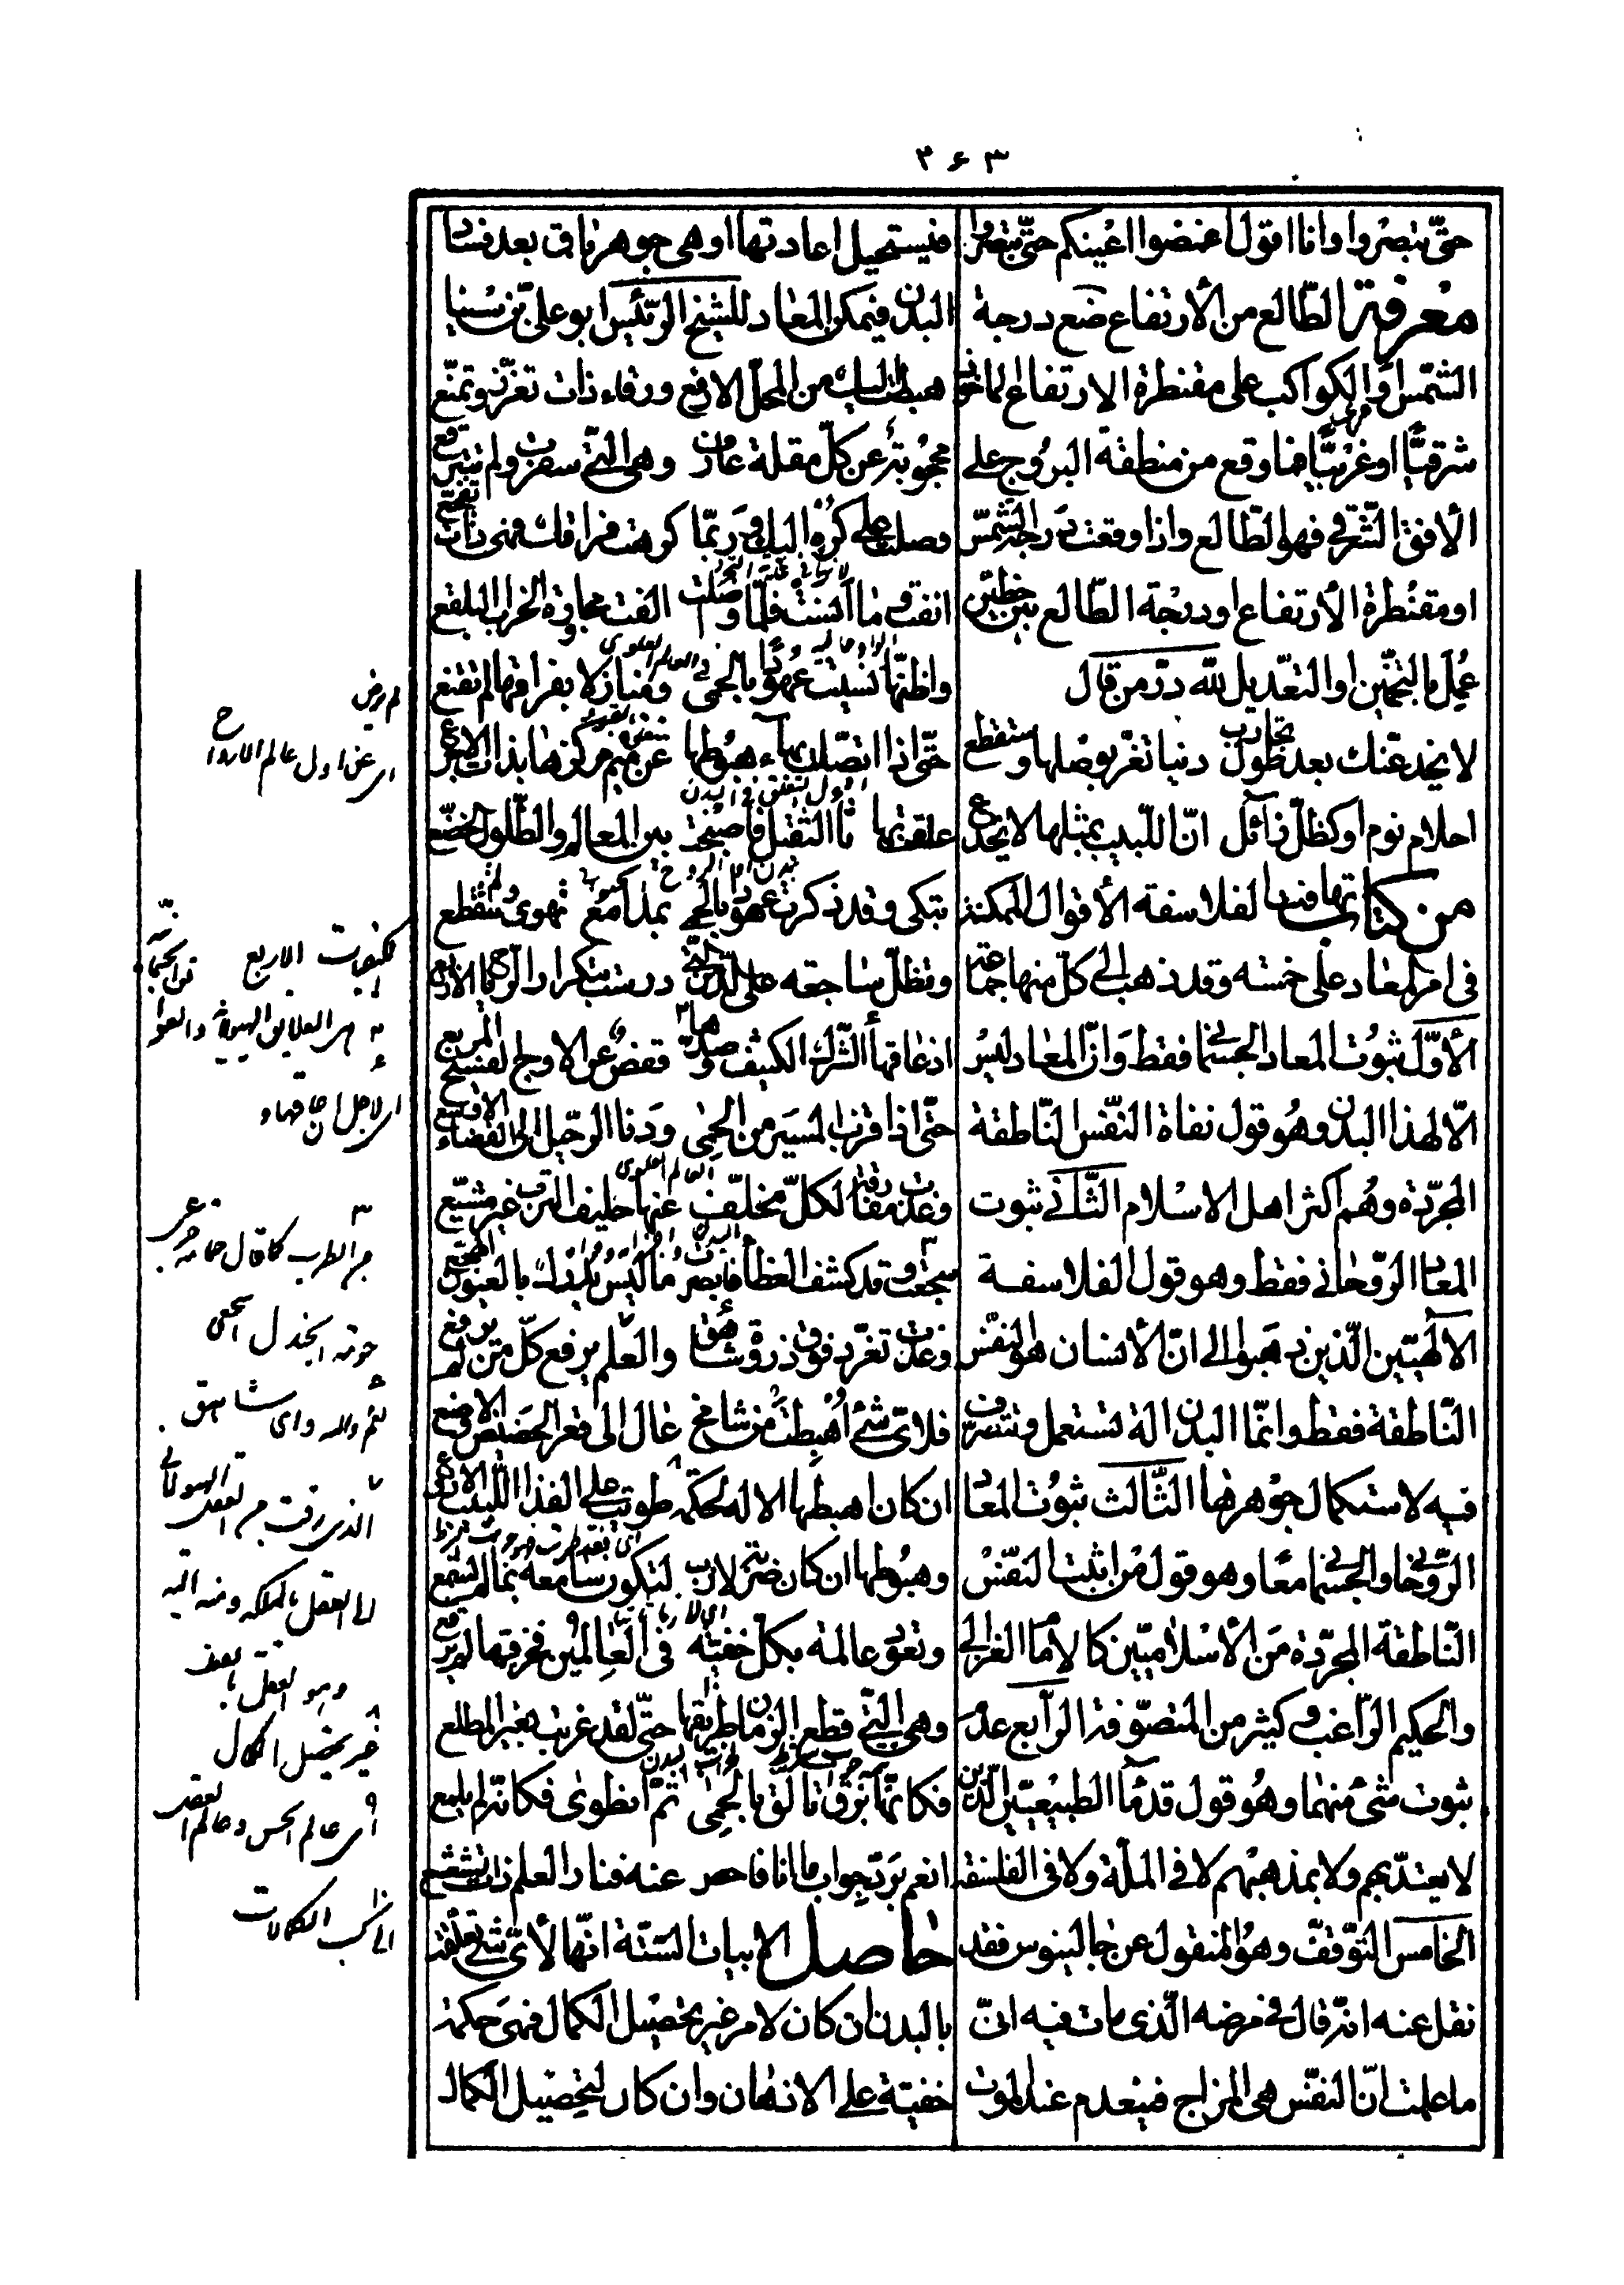 ۳۶۳
حتّى تبصروا وانا اقول اغمضوا اعينكم حتّى تبصروا
معرفة الطّالع من الأرتفاع ضع درجة
الشّمس أو الكواكب على مقنطرة الارتفاع
شرقيّا او غربيّا فما وقع من منطقة البروج على
الأفق الشّرقى فهو الطّالع واذا وقعت درجة الشّمس
او مقنطرة الأرتفاع او درجة الطّالع بين خطّين
عمل بالتّخمين او التّعديل لله درّ من قال
لا يخدعنّك بعد طول تجارب دنيا تغرّ بوصلها وستقطع
احلام نوم او كظلّ زائل انّ اللّبيب بمثلها لا يخدع
من كتاب تهافت الفلاسفة الأقوال الممكنة
فى امر المعاد على خمسة وقد ذهب الى كلّ منها جماعة
الأوّل ثبوت المعاد الجسمانى فقط وانّ المعاد ليس
الّا لهذا البدن وهو قول نفاة النّفس النّاطقة
المجرّدة وهم اكثر اهل الاسلام الثّانى ثبوت
المعاد الرّوحانى فقط وهو قول الفلاسفة
الالهيّين الّذين ذهبوا الى انّ الأنسان هو النّفس
النّاطقة فقط وانّما البدن الة تستعمل وتتصرّف
فيه لاستكمال جوهرها الثّالث ثبوت المعاد
الرّوحانى والجسمانى معًا وهو قول من اثبت النّفس
النّاطقة المجرّدة من الأسلاميّين كالأمام الغزالى
والحكيم الرّاغب وكثير من المتصوّفة الرّابع عدم
ثبوت شئ منهما وهو قول قدماء الطّبيعيّين الّذين
لا يعتدّ بهم ولا بمذهبهم لا فى الملّة ولا فى الفلسفة
الخامس التّوقّف وهو المنقول عن جالينوس فقد
نقل عنه انّه قال فى مرضه الّذى مات فيه انّى
ما علمت انّ النّفس هى المزاج فينعدم عند الموت
فيستحيل اعادتها او هى جوهر باق بعد فساد
البدن فيمكن المعاد للشّيخ الرّئيس ابو علىّ بن سينا
هبطت اليك من المحلّ الارفع ورقاء ذات تعزّز وتمنّع
محجوبة عن كلّ مقلة عارف وهى الّتى سفرت ولم تتبرقع
وصلت على كره اليك وربّما كرهت فراقك فهى ذات تفجّع
انفت وما أنست فلمّا وصلت الفت مجاورة الخراب البلقع
واظنّها نسيت عهودًا بالحمى ومنازلا بفراقها لم تقنع
حتّى اذا اتّصلت بهاء هبوطها عن ميم مركزها بذات الاجرع
علقت بها ثاء الثّقيل فاصبحت بين المعالم والطّلول الخضّع
تبكى وقد ذكرت عهودا بالحمى بمدامع تهمى ولم تتقطّع
وتظلّ ساجعة على الدّمن الّتى درست بتكرار الرّياح الاربع
اذ عاقها الشّرك الكثيف وصدّها قفص عن الاوج الفسيح المربع
حتّى اذا قرب المسير من الحمى ودنا الرّحيل الى الفضاء الاوسع
وغدت مفارقة لكلّ مخلّف عنها حليف التّرب غير مشيّع
سجعت وقد كشف الغطاء فابصرت ما ليس يدرك بالعيون الهجّع
وغدت تغرّد فوق ذروة شاهق والعلم يرفع كلّ من لم يرفع
فلاىّ شئ أهبطت من شامخ عال الى قعر الحضيض الاوضع
ان كان اهبطها الاله لحكمة طويت على الفذّ اللّبيب الاروع
وهبوطها ان كان ضربة لازب لتكون سامعة بما لم تسمع
وتعود عالمة بكلّ خفيّة فى العالمين فخرقها لم يرقع
وهى الّتى قطع الزّمان طريقها حتّى لقد غربت بغير المطلع
فكانّها برق تالّق بالحمى ثمّ انطوى فكانّه لم يلمع
انعم بردّ جواب ما انا فاحص عنه فنار العلم ذات تشعشع
حاصل الابيات السّتة انّها لأىّ شئ تعلّقت
بالبدن ان كان لامر غير تحصيل الكمال فهى حكمة
خفيّة على الاذهان وان كان لتحصيل الكمال
لم ترض
اى عن اول عالم الارواح
الاربع
اى لاجل
كما قال
غير تحصيل الكمال
اى عالم الحس وعالم العقل